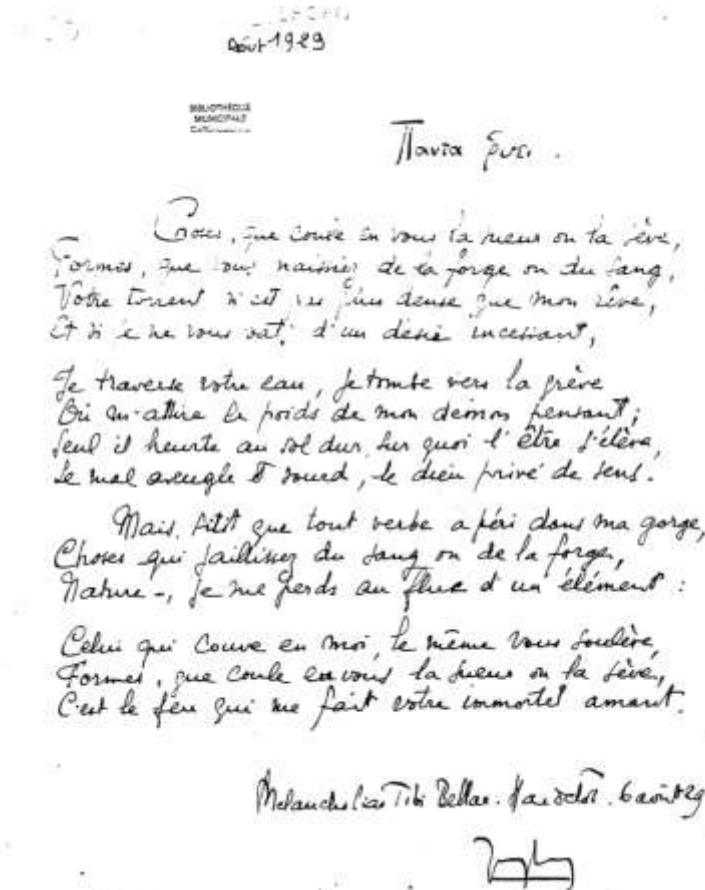 Août 1929
BIBLIOTHEQUE
MUNICIPALE
Πάντα ῥεῖ.
Choses, que coule en vous la sueur ou la sève,
Formes, que vous naissiez de la forge ou du sang,
Votre torrent n'est pas plus dense que mon rêve,
Et si je ne vous bats d'un désir incessant,
Je traverse votre eau, je tombe vers la grève
Où m'attire le poids de mon démon pensant ;
Seul il heurte au sol dur sur quoi l'être s'élève,
Le mal aveugle et sourd, le dieu privé de sens.
Mais, sitôt que tout verbe a péri dans ma gorge,
Choses qui jaillissez du sang ou de la forge,
Nature –, je me perds au flux d'un élément :
Celui qui couve en moi, le même vous soulève,
Formes, que coule en vous la sueur ou la sève,
C'est le feu qui me fait votre immortel amant.
Melancholiae Tibi Bellae. Hardelot. 6 août 29